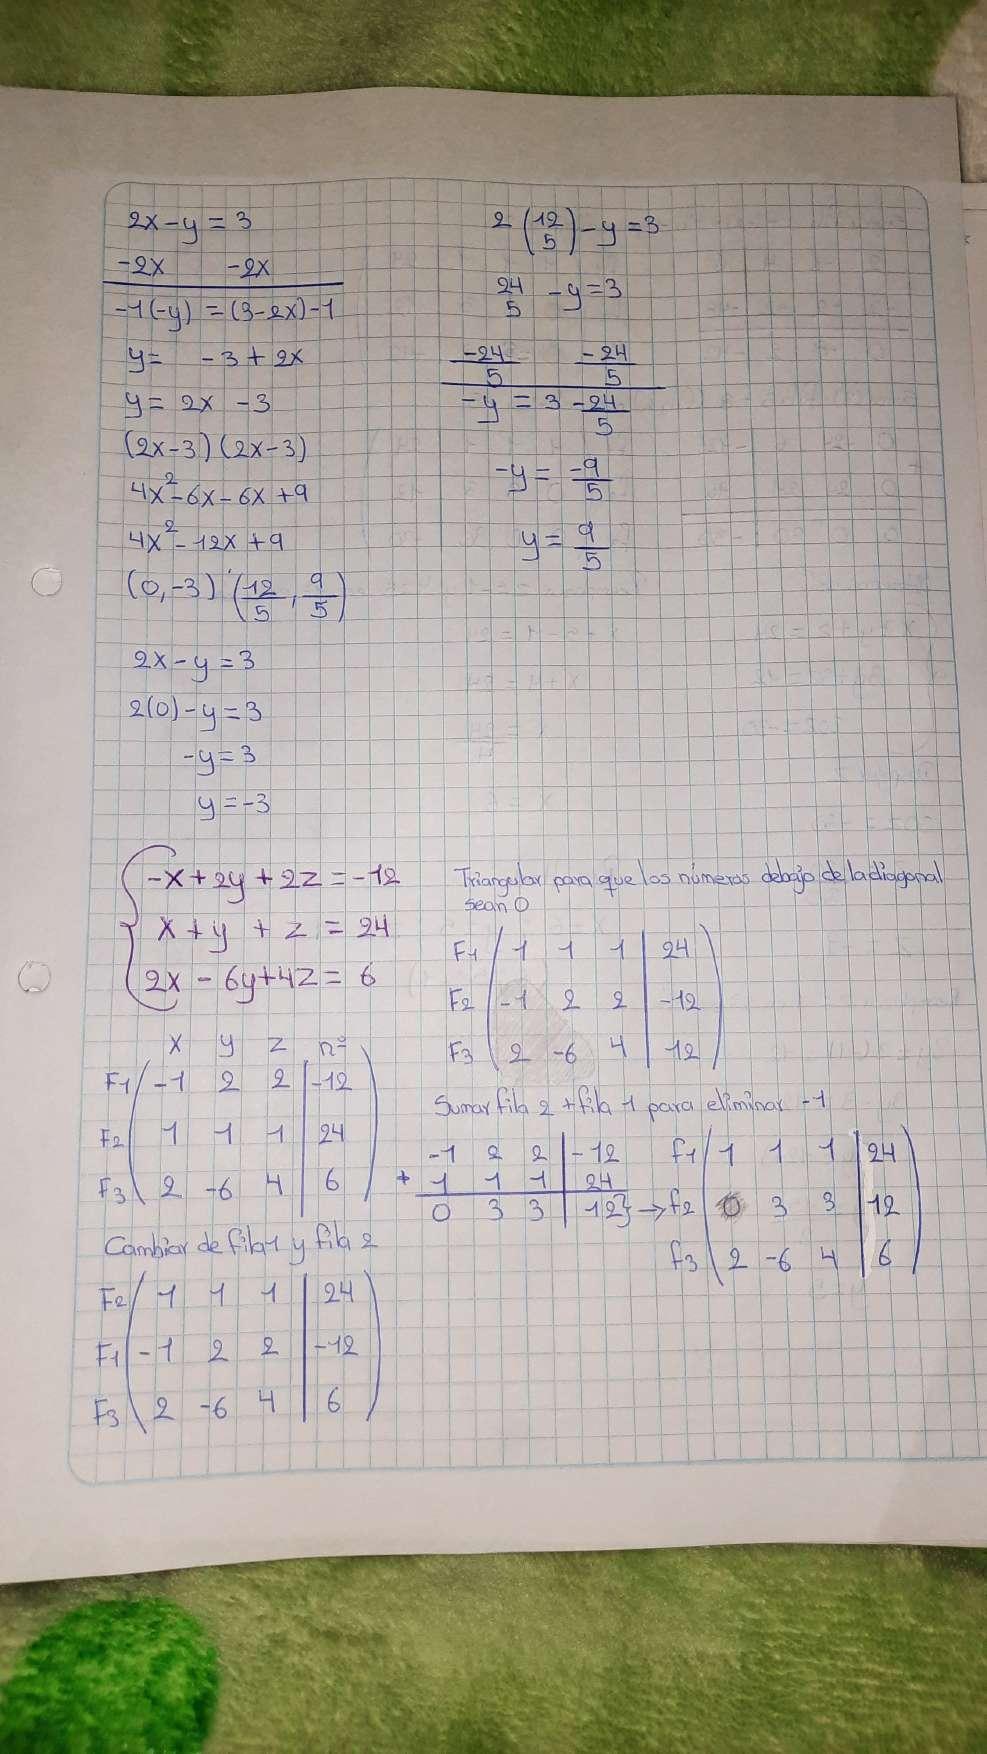 2x-y = 3
-2x -2x
-1(-y) = (3-2x)-1
y= -3+2x
y= 2x -3
(2x-3)(2x-3)
4x²-6x-6x+9
4x²-12x+9
(0,-3) (12/5, 9/5)
2x-y=3
2(0)-y=3
-y=3
y=-3
2(12/5)-y=3
24/5 -y=3
-24/5 -24/5
-y = 3 -24/5
-y= -9/5
y= 9/5
-x+2y+2z=-12
x+y+z=24
2x-6y+4z=6
x y z nº
F1 -1 2 2 | -12
F2 1 1 1 | 24
F3 2 -6 4 | 6
Cambiar de fila 1 y fila 2
F2 1 1 1 | 24
F1 -1 2 2 | -12
F3 2 -6 4 | 6
Triangular para que los números debajo de la diagonal
sean 0
F1 1 1 1 | 24
F2 -1 2 2 | -12
F3 2 -6 4 | 12
Sumar fila 2 + fila 1 para eliminar -1
-1 2 2 | -12
+ 1 1 1 | 24
0 3 3 | 12} →
f1 1 1 1 | 24
f2 0 3 3 | 12
f3 2 -6 4 | 6